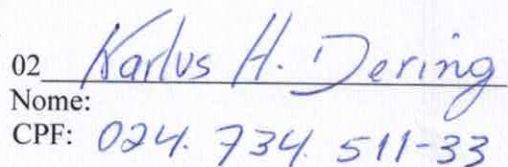 02 Karlus H. Dering
Nome:
CPF: 024.734.511-33